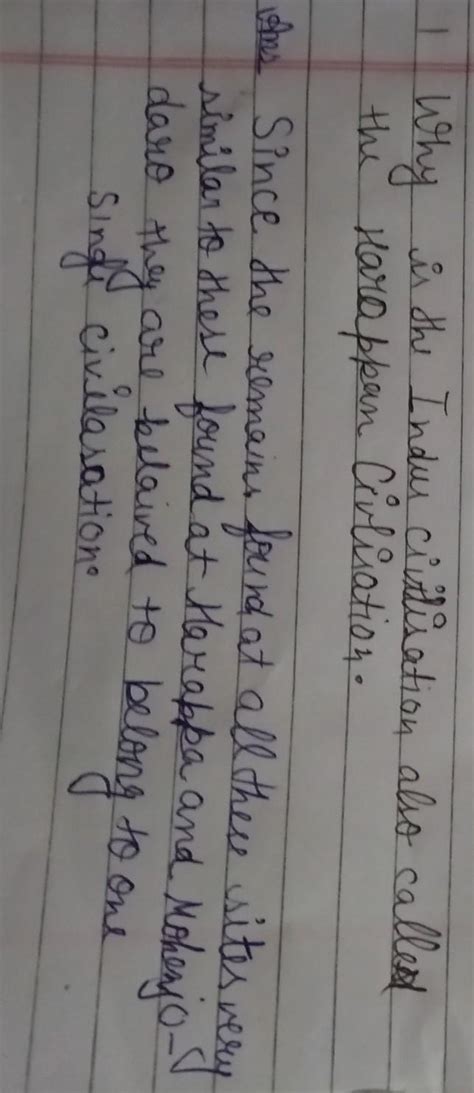 1 Why is the Indus civilisation also called
the Harappan Civilisation.
Ans Since the remains found at all these sites very
similar to these found at Harappa and Mohenjo-
daro they are belaived to belong to one
Single civilasation.